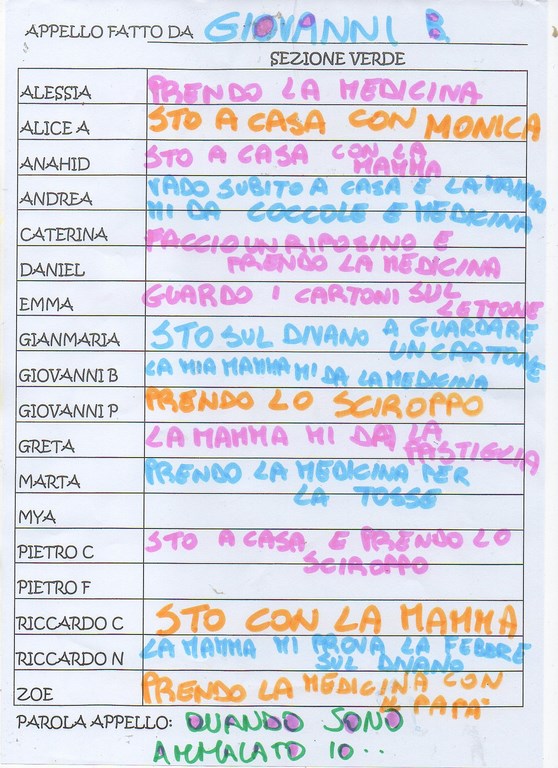 APPELLO FATTO DA GIOVANNI B.
SEZIONE VERDE
ALESSIA PRENDO LA MEDICINA
ALICE A STO A CASA CON MONICA
ANAHID STO A CASA CON LA
MAMMA
ANDREA VADO SUBITO A CASA E LA MAMMA
MI DA COCCOLE E MEDICINA
CATERINA FACCIO UN RIPOSINO E
DANIEL PRENDO LA MEDICINA
EMMA GUARDO I CARTONI SUL
LETTONE
GIANMARIA STO SUL DIVANO A GUARDARE
UN CARTONE
GIOVANNI B LA MIA MAMMA MI DA LA MEDICINA
GIOVANNI P PRENDO LO SCIROPPO
GRETA LA MAMMA MI DA LA
PASTIGLIA
MARTA PRENDO LA MEDICINA PER
LA TOSSE
MYA
PIETRO C STO A CASA E PRENDO LO
SCIROPPO
PIETRO F
RICCARDO C STO CON LA MAMMA
RICCARDO N LA MAMMA MI PROVA LA FEBBRE
SUL DIVANO
ZOE PRENDO LA MEDICINA CON
IL PAPA'
PAROLA APPELLO: QUANDO SONO
AMMALATO IO...